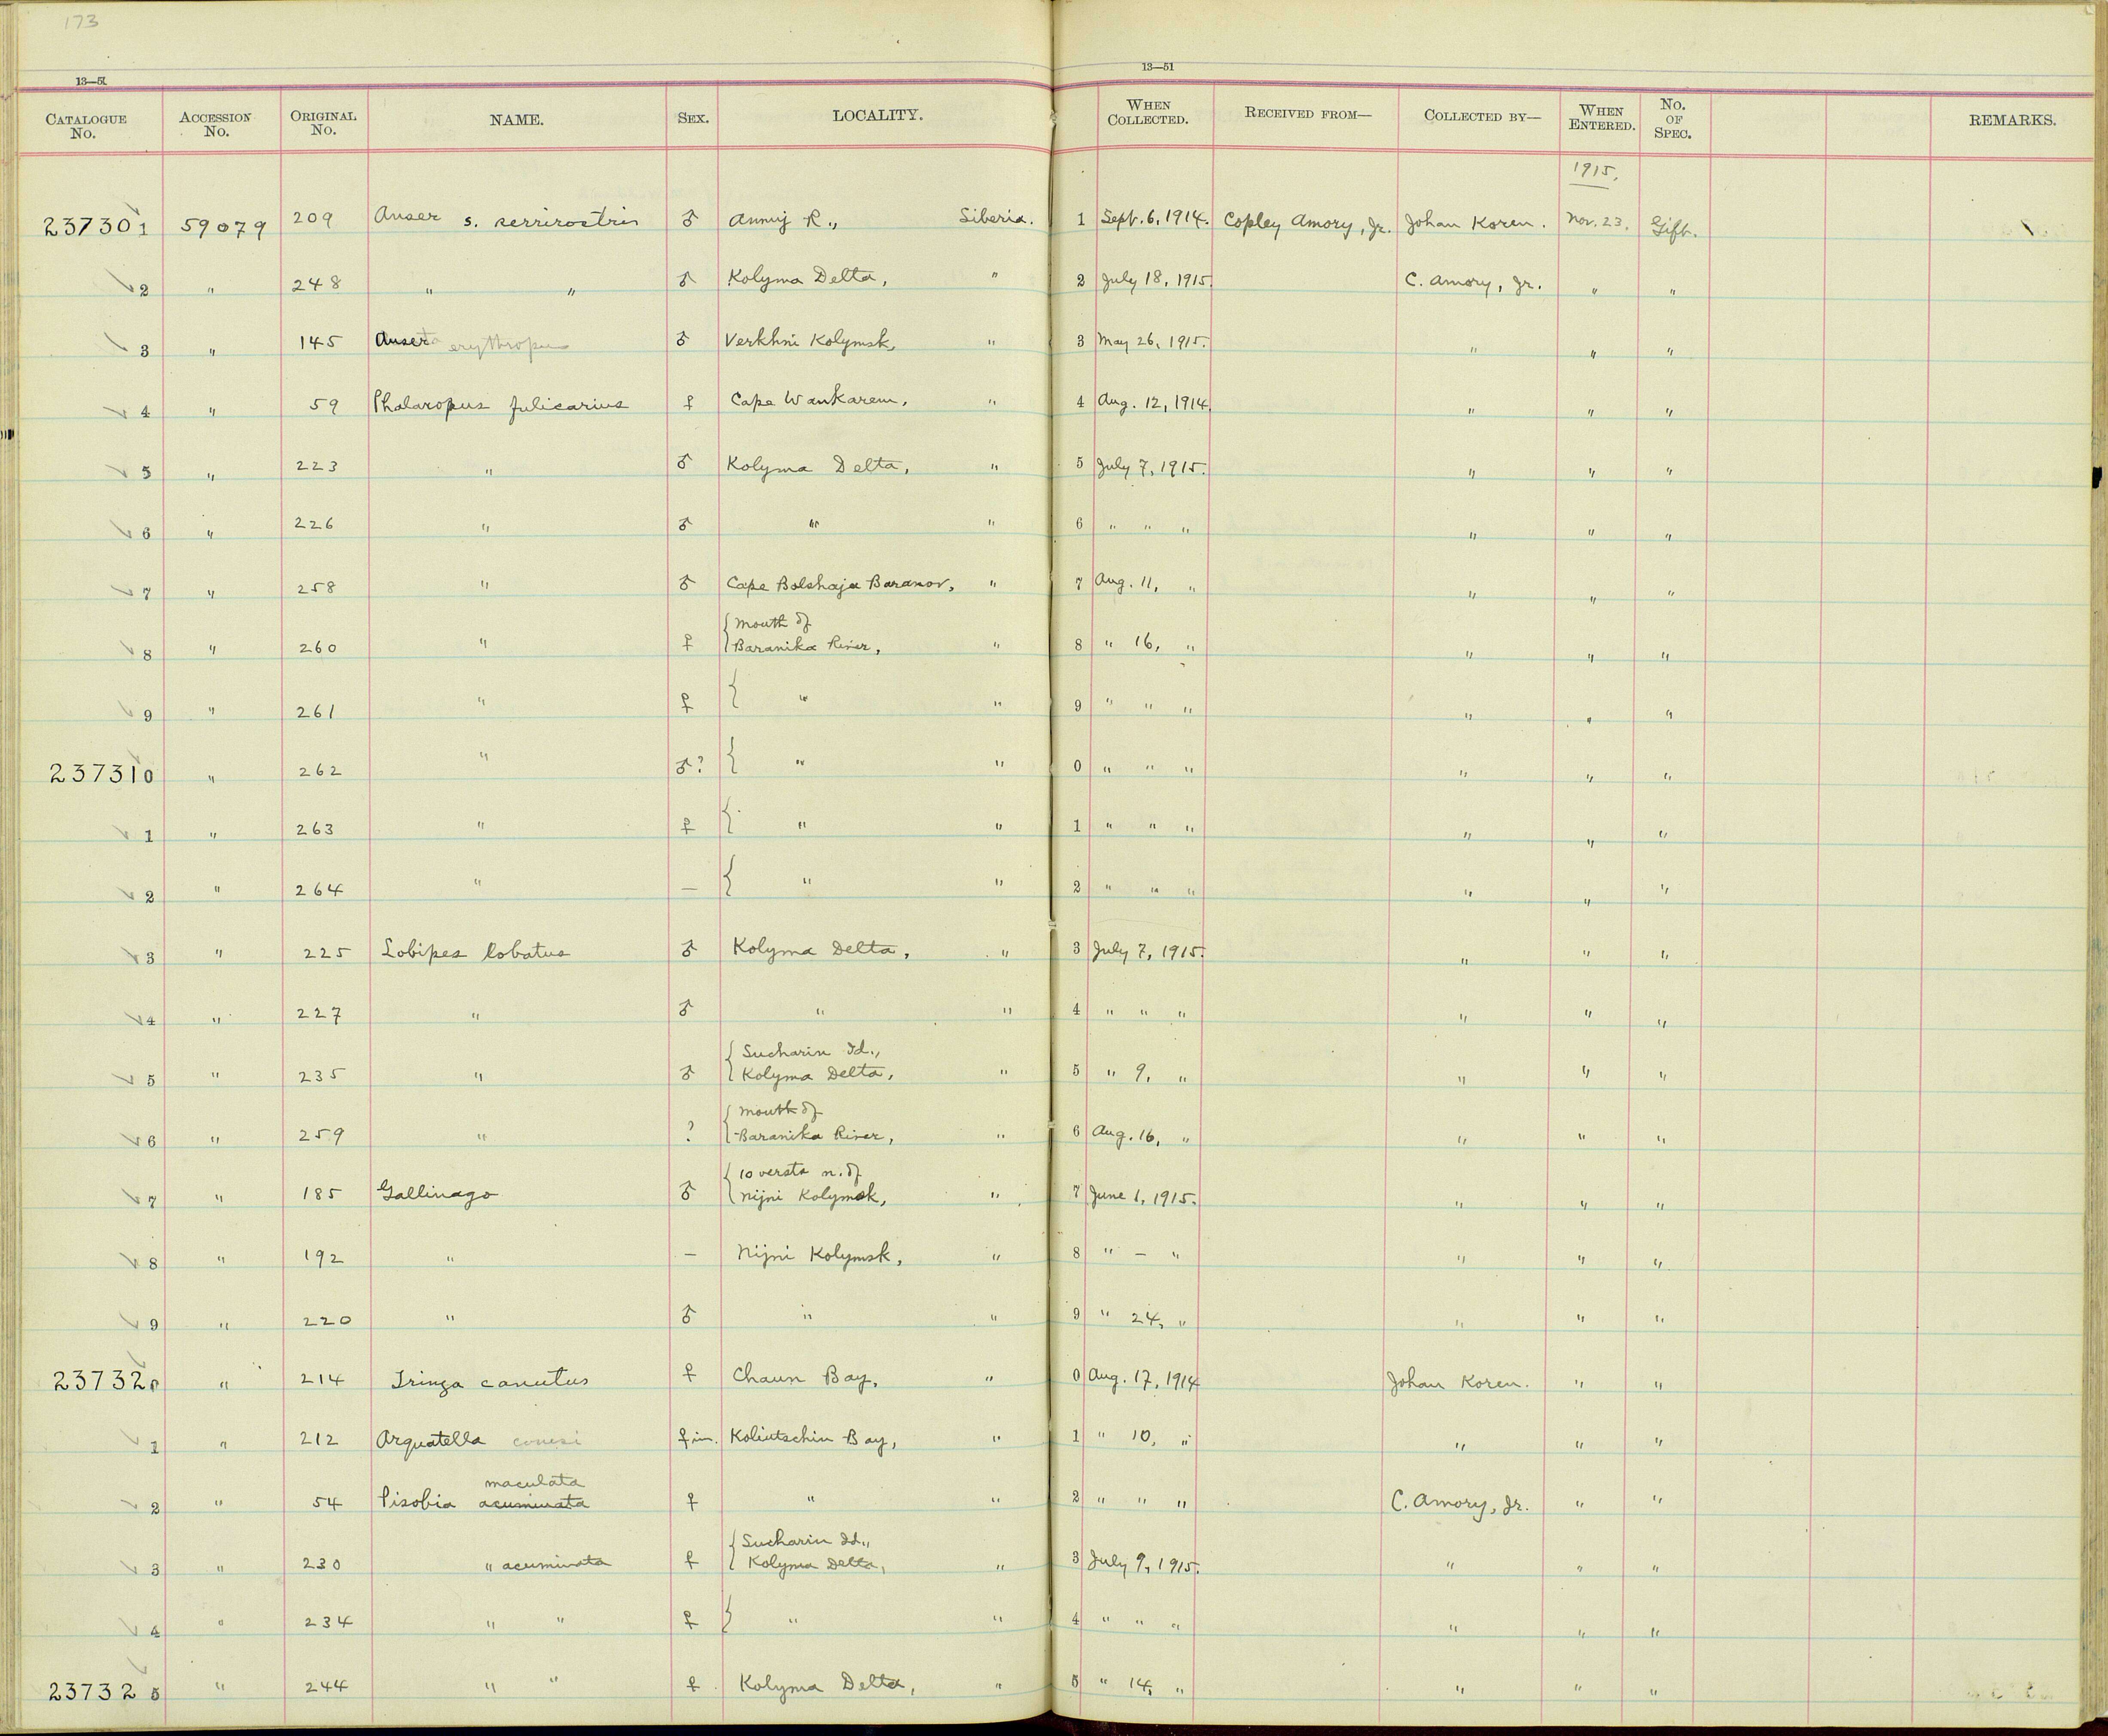 173
13—51 13—51
CATALOGUE No. ACCESSION No. ORIGINAL No. NAME. SEX. LOCALITY. WHEN COLLECTED. RECEIVED FROM— COLLECTED BY— WHEN ENTERED. No. OF SPEC. REMARKS.
1915.
237301 59079 209 Anser s. serrirostris ♂ R., Siberia. 1 Sept. 6, 1914. Copley Amory, Jr. Johan Koren. Nov. 23. Gift.
2 " 248 " " ♂ Kolyma Delta, " 2 July 18, 1915. C. Amory, Jr. " "
3 " 145 Anser erythropus ♂ Verkhni Kolymsk, " 3 May 26, 1915. " " "
4 " 59 Phalaropus fulicarius ♀ Cape Wankarem, " 4 Aug. 12, 1914. " " "
5 " 223 " ♂ Kolyma Delta, " 5 July 7, 1915. " " "
6 " 226 " ♂ " " 6 " " " " " "
7 " 258 " ♂ Cape Bolshaja Baranov, " 7 Aug. 11, " " " "
8 " 260 " ♀ { Mouth of Baranika River, " 8 " 16, " " " "
9 " 261 " ♀ { " " 9 " " " " " "
237310 " 262 " ♂? { " " 0 " " " " " "
1 " 263 " ♀ { " " 1 " " " " " "
2 " 264 " — { " " 2 " " " " " "
3 " 225 Lobipes lobatus ♂ Kolyma Delta, " 3 July 7, 1915. " " "
4 " 227 " ♂ " " 4 " " " " " "
5 " 235 " ♂ { Sucharin Id., Kolyma Delta, " 5 " 9, " " " "
6 " 259 " ? { Mouth of Baranika River, " 6 Aug. 16, " " " "
7 " 185 Gallinago ♂ { 10 versts n. of Nijni Kolymsk, " 7 June 1, 1915. " " "
8 " 192 " — Nijni Kolymsk, " 8 " — " " " "
9 " 220 " ♂ " " 9 " 24, " " " "
237320 " 214 Tringa canutus ♀ Chaun Bay, " 0 Aug. 17, 1914 Johan Koren. " "
1 " 212 Arquatella couesi ♀ im. Koliutschin Bay, " 1 " 10, " " " "
maculata
2 " 54 Pisobia acuminata ♀ " " 2 " " " C. Amory, Jr. " "
3 " 230 " acuminata ♀ { Sucharin Id., Kolyma Delta, " 3 July 9, 1915. " " "
4 " 234 " " ♀ } " " 4 " " " " " "
237325 " 244 " " ♀ Kolyma Delta, " 5 " 14, " " " "